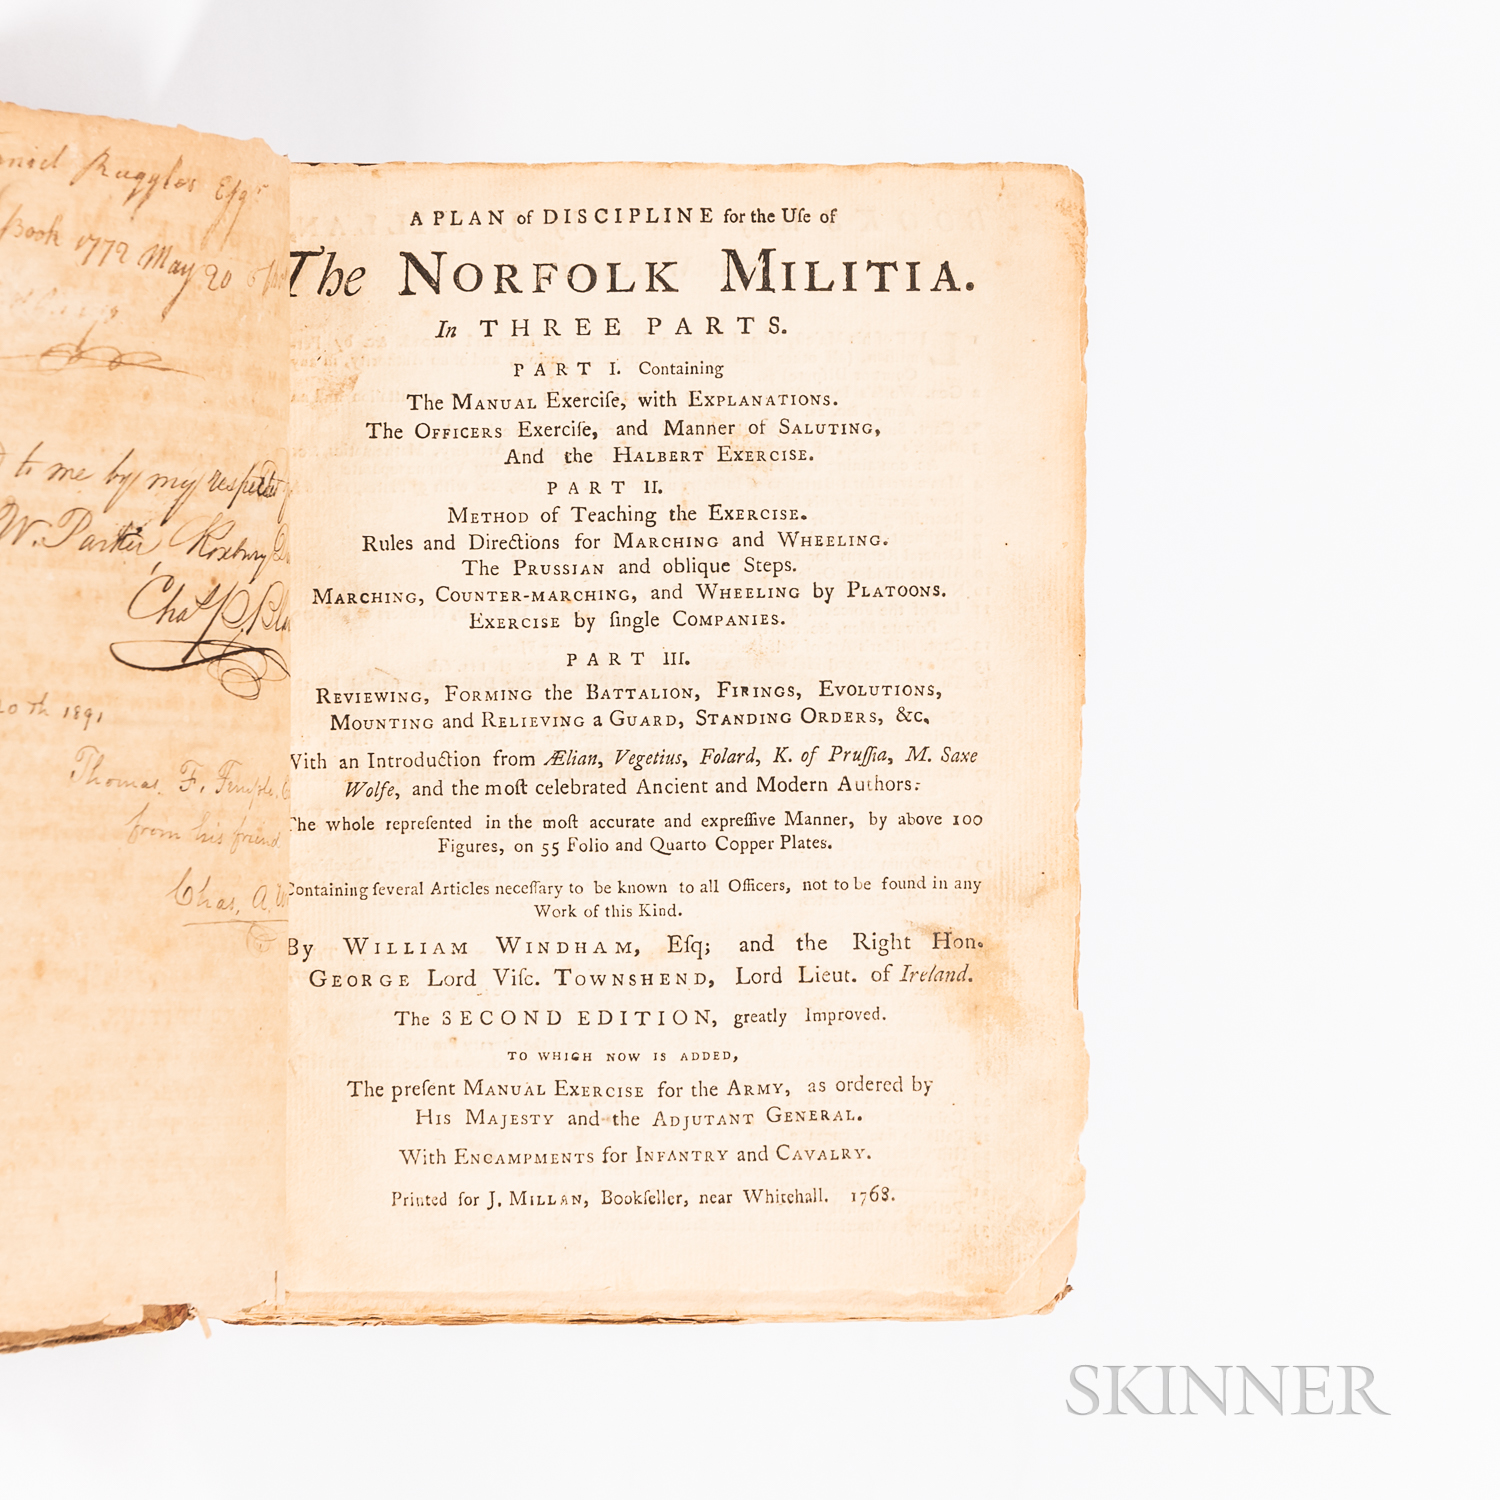 Ruggles Esqr
Book 1772 May 20
to me by my respected
W. Parker, Roxbury
Chas P.
20th 1891
Thomas. F. Temple.
from his friend
Chas. A.
A PLAN of DISCIPLINE for the Uſe of
The NORFOLK MILITIA.
In THREE PARTS.
PART I. Containing
The MANUAL Exerciſe, with EXPLANATIONS.
The OFFICERS Exerciſe, and Manner of SALUTING,
And the HALBERT EXERCISE.
PART II.
METHOD of Teaching the EXERCISE.
Rules and Directions for MARCHING and WHEELING.
The PRUSSIAN and oblique Steps.
MARCHING, COUNTER-MARCHING, and WHEELING by PLATOONS.
EXERCISE by ſingle COMPANIES.
PART III.
REVIEWING, FORMING the BATTALION, FIRINGS, EVOLUTIONS,
MOUNTING and RELIEVING a GUARD, STANDING ORDERS, &c,
With an Introduction from Ælian, Vegetius, Folard, K. of Pruſſia, M. Saxe
Wolfe, and the moſt celebrated Ancient and Modern Authors:
The whole repreſented in the moſt accurate and expreſſive Manner, by above 100
Figures, on 55 Folio and Quarto Copper Plates.
Containing ſeveral Articles neceſſary to be known to all Officers, not to be found in any
Work of this Kind.
By WILLIAM WINDHAM, Eſq; and the Right Hon.
GEORGE Lord Viſc. TOWNSHEND, Lord Lieut. of Ireland.
The SECOND EDITION, greatly Improved.
TO WHICH NOW IS ADDED,
The preſent MANUAL EXERCISE for the ARMY, as ordered by
HIS MAJESTY and the ADJUTANT GENERAL.
With ENCAMPMENTS for INFANTRY and CAVALRY.
Printed for J. MILLAN, Bookſeller, near Whitehall. 1768.
SKINNER